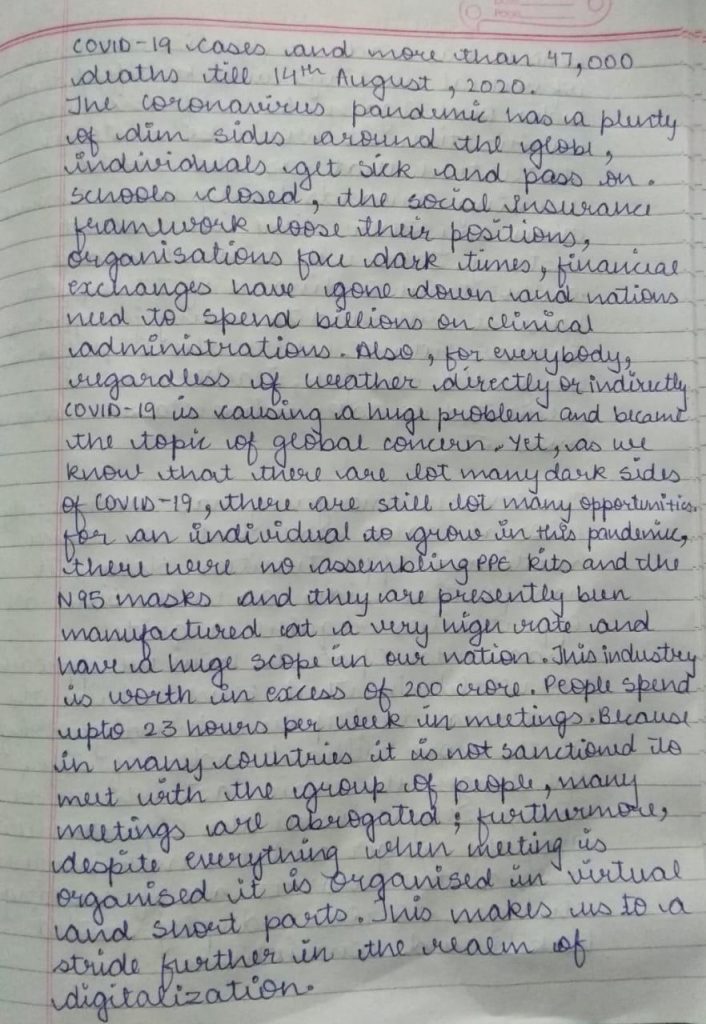 COVID-19 cases and more than 47,000
deaths till 14th August, 2020.
The coronavirus pandemic has a plenty
of dim sides around the globe,
individuals get sick and pass on.
schools closed, the social insurance
framework loose their positions,
organisations face dark times, financial
exchanges have gone down and nations
need to spend billions on clinical
administrations. Also, for everybody,
regardless of weather directly or indirectly
COVID-19 is causing a huge problem and became
the topic of global concern. Yet, as we
know that there are lot many dark sides
of COVID-19, there are still lot many opportunities.
for an individual to grow in this pandemic,
there were no assembling PPE kits and the
N95 masks and they are presently been
manufactured at a very high rate and
have a huge scope in our nation. This industry
is worth in excess of 200 crore. People spend
upto 23 hours per week in meetings. Because
in many countries it is not sanctioned to
meet with the group of people, many
meetings are abrogated; furthermore,
despite everything when meeting is
organised it is organised in virtual
and short parts. This makes us to a
stride further in the realm of
digitalization.